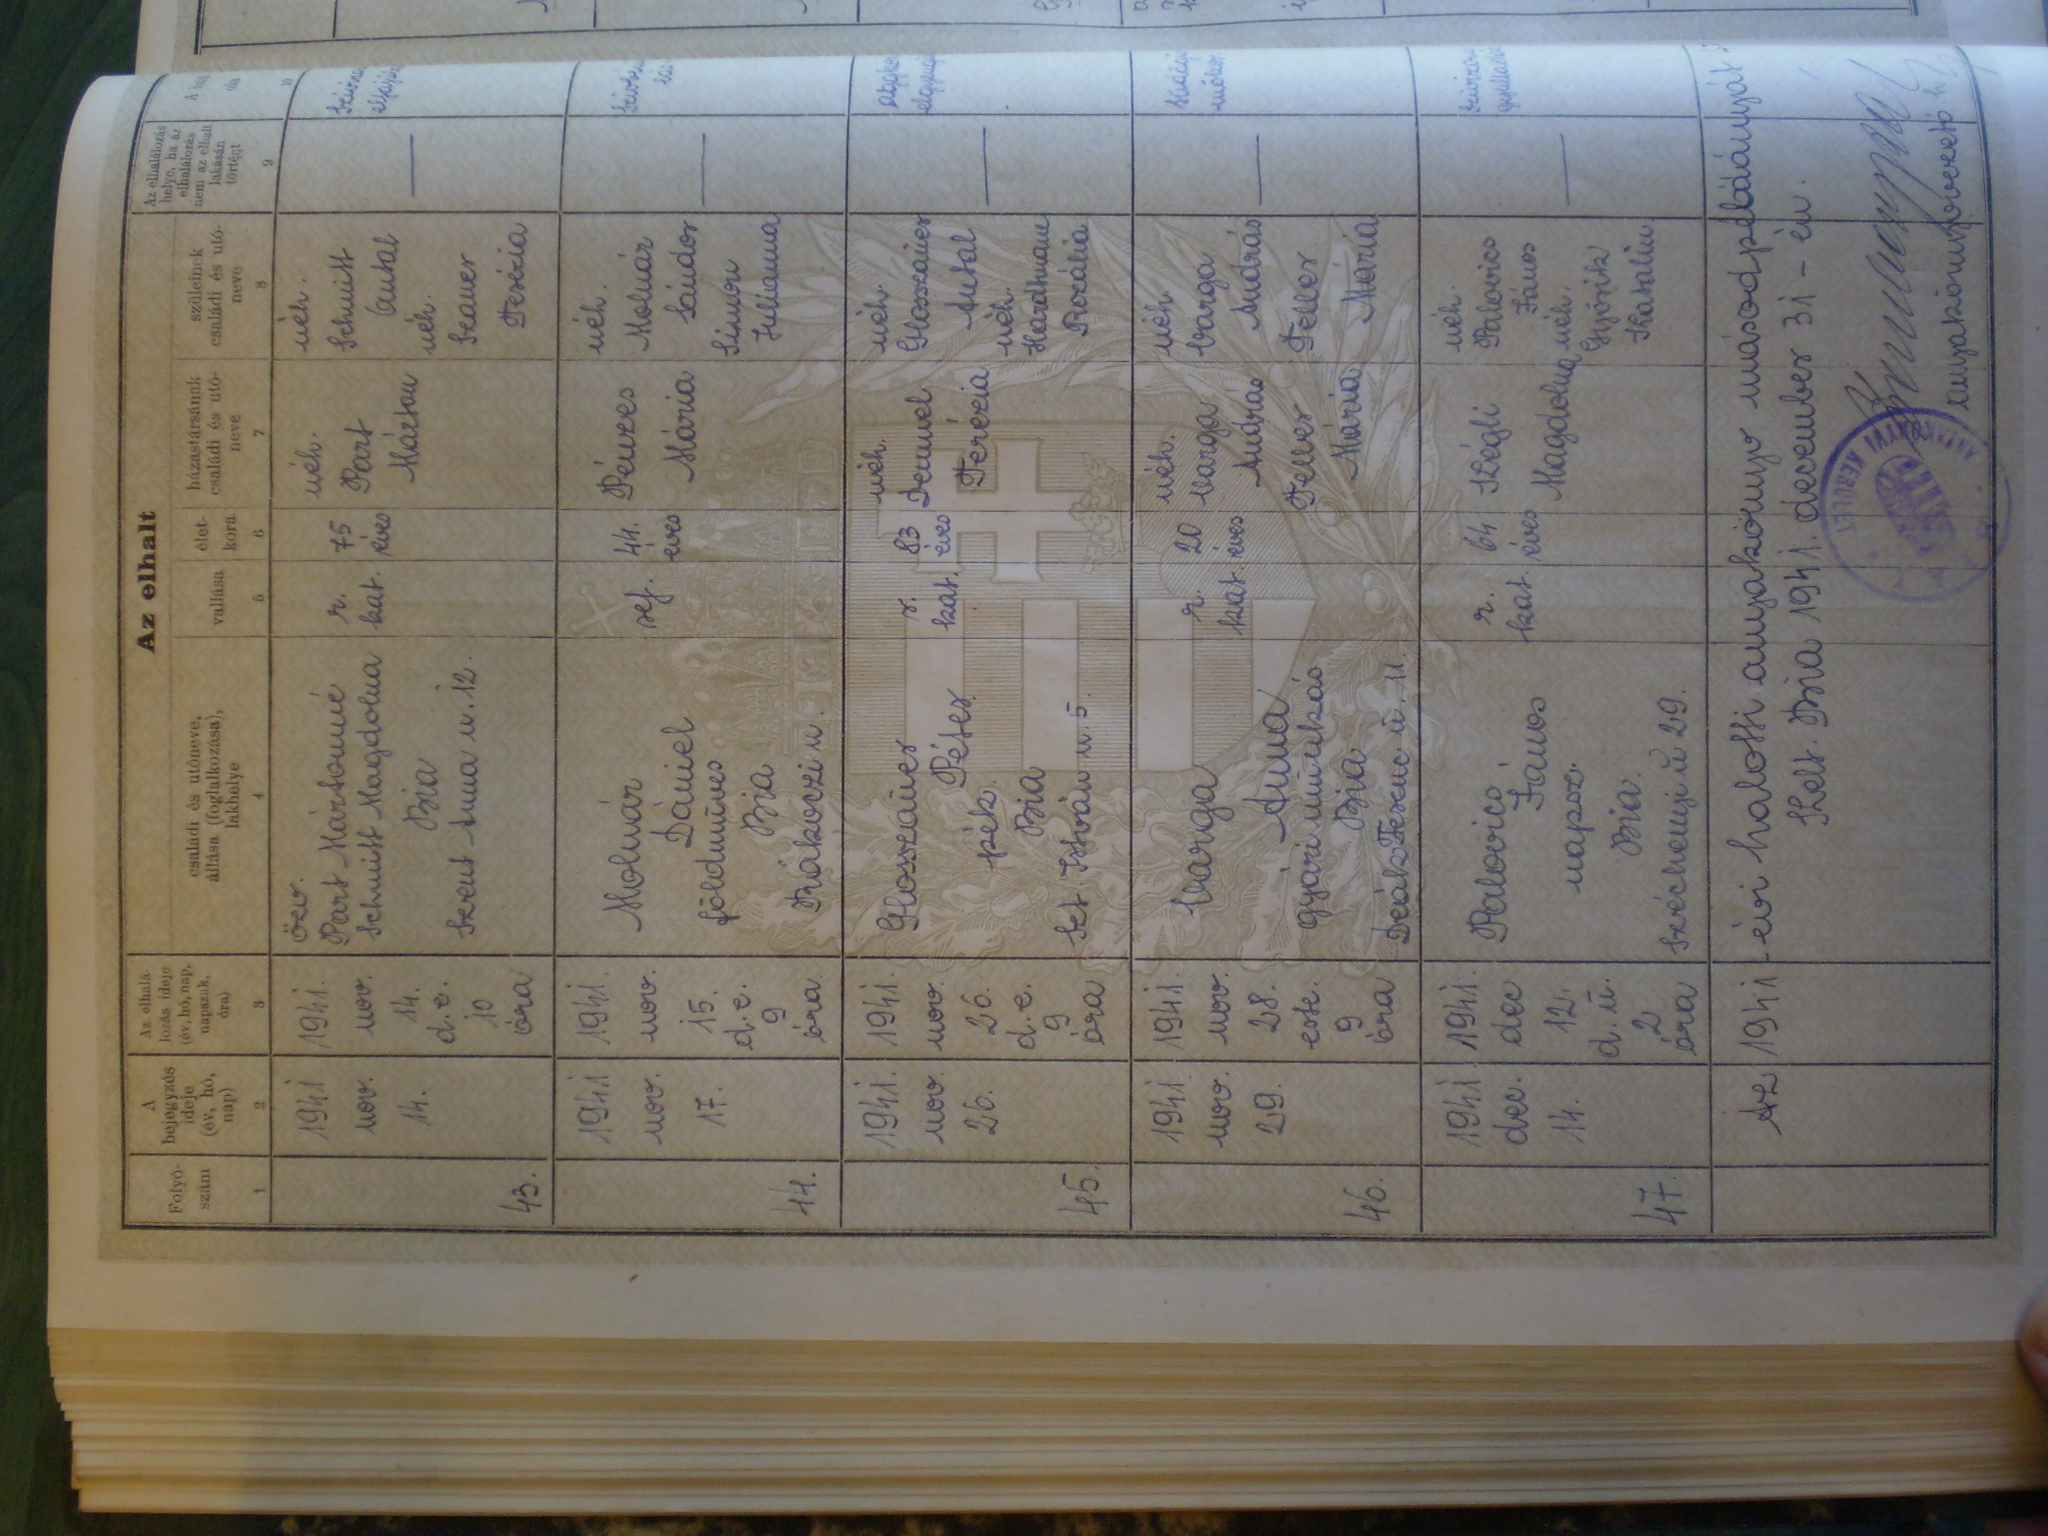 Az elhalt
Folyó-
szám
1
A
bejegyzés
ideje
(év, hó,
nap)
2
Az elhalá-
lozás ideje
(év, hó, nap,
napszak,
óra)
3
családi és utóneve,
állása (foglalkozása),
lakhelye
4
vallása
5
élet-
kora
6
házastársának
családi és utó-
neve
7
szüleinek
családi és utó-
neve
8
Az elhalálozás
helye, ha az
elhalálozás
nem az elhalt
lakásán
történt
9
A
10
43.
1941
nov.
14.
1941.
nov.
14.
d. e.
10
óra
özv.
Part Mártonné
Schmitt Magdolna
Bia
Szent Anna u. 12.
r.
kat.
75
éves
néh.
Part
Márton
néh.
Schmitt
Antal
néh.
Terézia
—
44.
1941
nov.
17.
1941.
nov.
15.
d. e.
9
óra.
Molnár
Dániel
földműves
Bia
Rákoczi u.
ref.
44.
éves
Pénzes
Mária
néh.
Molnár
Sándor
Simon
Julianna
—
45.
1941.
nov.
26.
1941.
nov.
26.
d. e.
9
óra
Péter
pék
Bia
Szt. István u. 5.
r.
kat.
83
éves
néh.
Terézia
néh.
Antal
néh.
Rozália
—
46.
1941.
nov.
29.
1941.
nov.
28.
este.
9
óra
Varga
Anna
gyári munkás
Bia
Deák Ferenc u. 11.
r.
kat.
20
éves
néh.
Varga
András
Feller
Mária
néh.
Varga
András
Feller
Mária
—
47.
1941.
dec.
14.
1941
dec
12.
d. u.
2
óra
Palovics
János
napsz.
Bia.
Széchenyi u 29.
r.
kat.
64
éves
Szégli
Magdolna
néh.
Palovics
János
néh.
Katalin
—
Az 1941-évi halotti anyakönyv másodpéldányát
Kelt. Bia 1941. december 31-én.
anyakönyvvezető h.
ANYAKÖNYVI KERÜLET